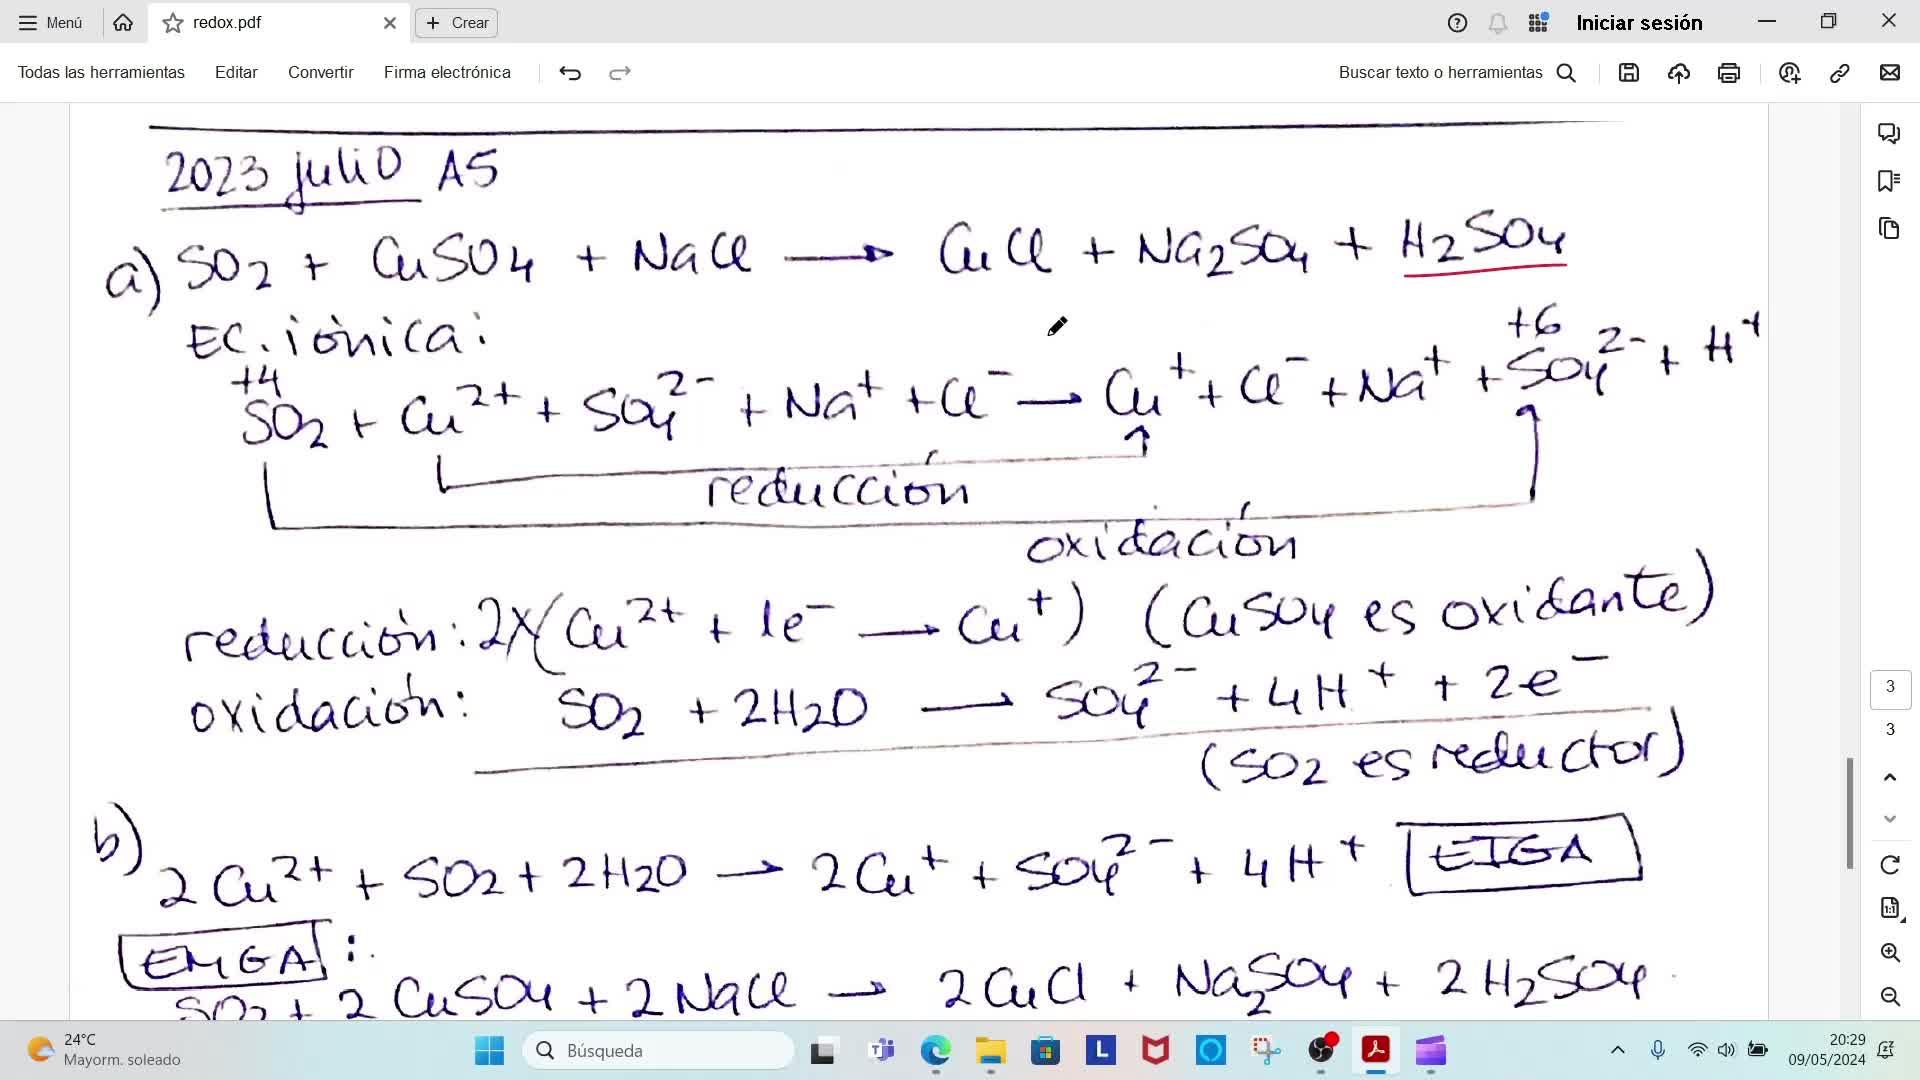 Menú
redox.pdf
Crear
Iniciar sesión
Todas las herramientas
Editar
Convertir
Firma electrónica
Buscar texto o herramientas
2023 julio A5
a) SO2 + CuSO4 + NaCl → CuCl + Na2SO4 + H2SO4
EC. iónica:
+4
+6
SO2 + Cu2+ + SO4 2- + Na+ + Cl- → Cu+ + Cl- + Na+ + SO4 2- + H+
reducción
oxidación
reducción: 2x(Cu2+ + 1e- → Cu+) (CuSO4 es oxidante)
oxidación: SO2 + 2H2O → SO4 2- + 4H+ + 2e-
(SO2 es reductor)
b)
2Cu2+ + SO2 + 2H2O → 2Cu+ + SO4 2- + 4H+ EIGA
EMGA:
SO2 + 2CuSO4 + 2NaCl → 2CuCl + Na2SO4 + 2H2SO4
3
3
1:1
24°C
Mayorm. soleado
Búsqueda
L
20:29
09/05/2024